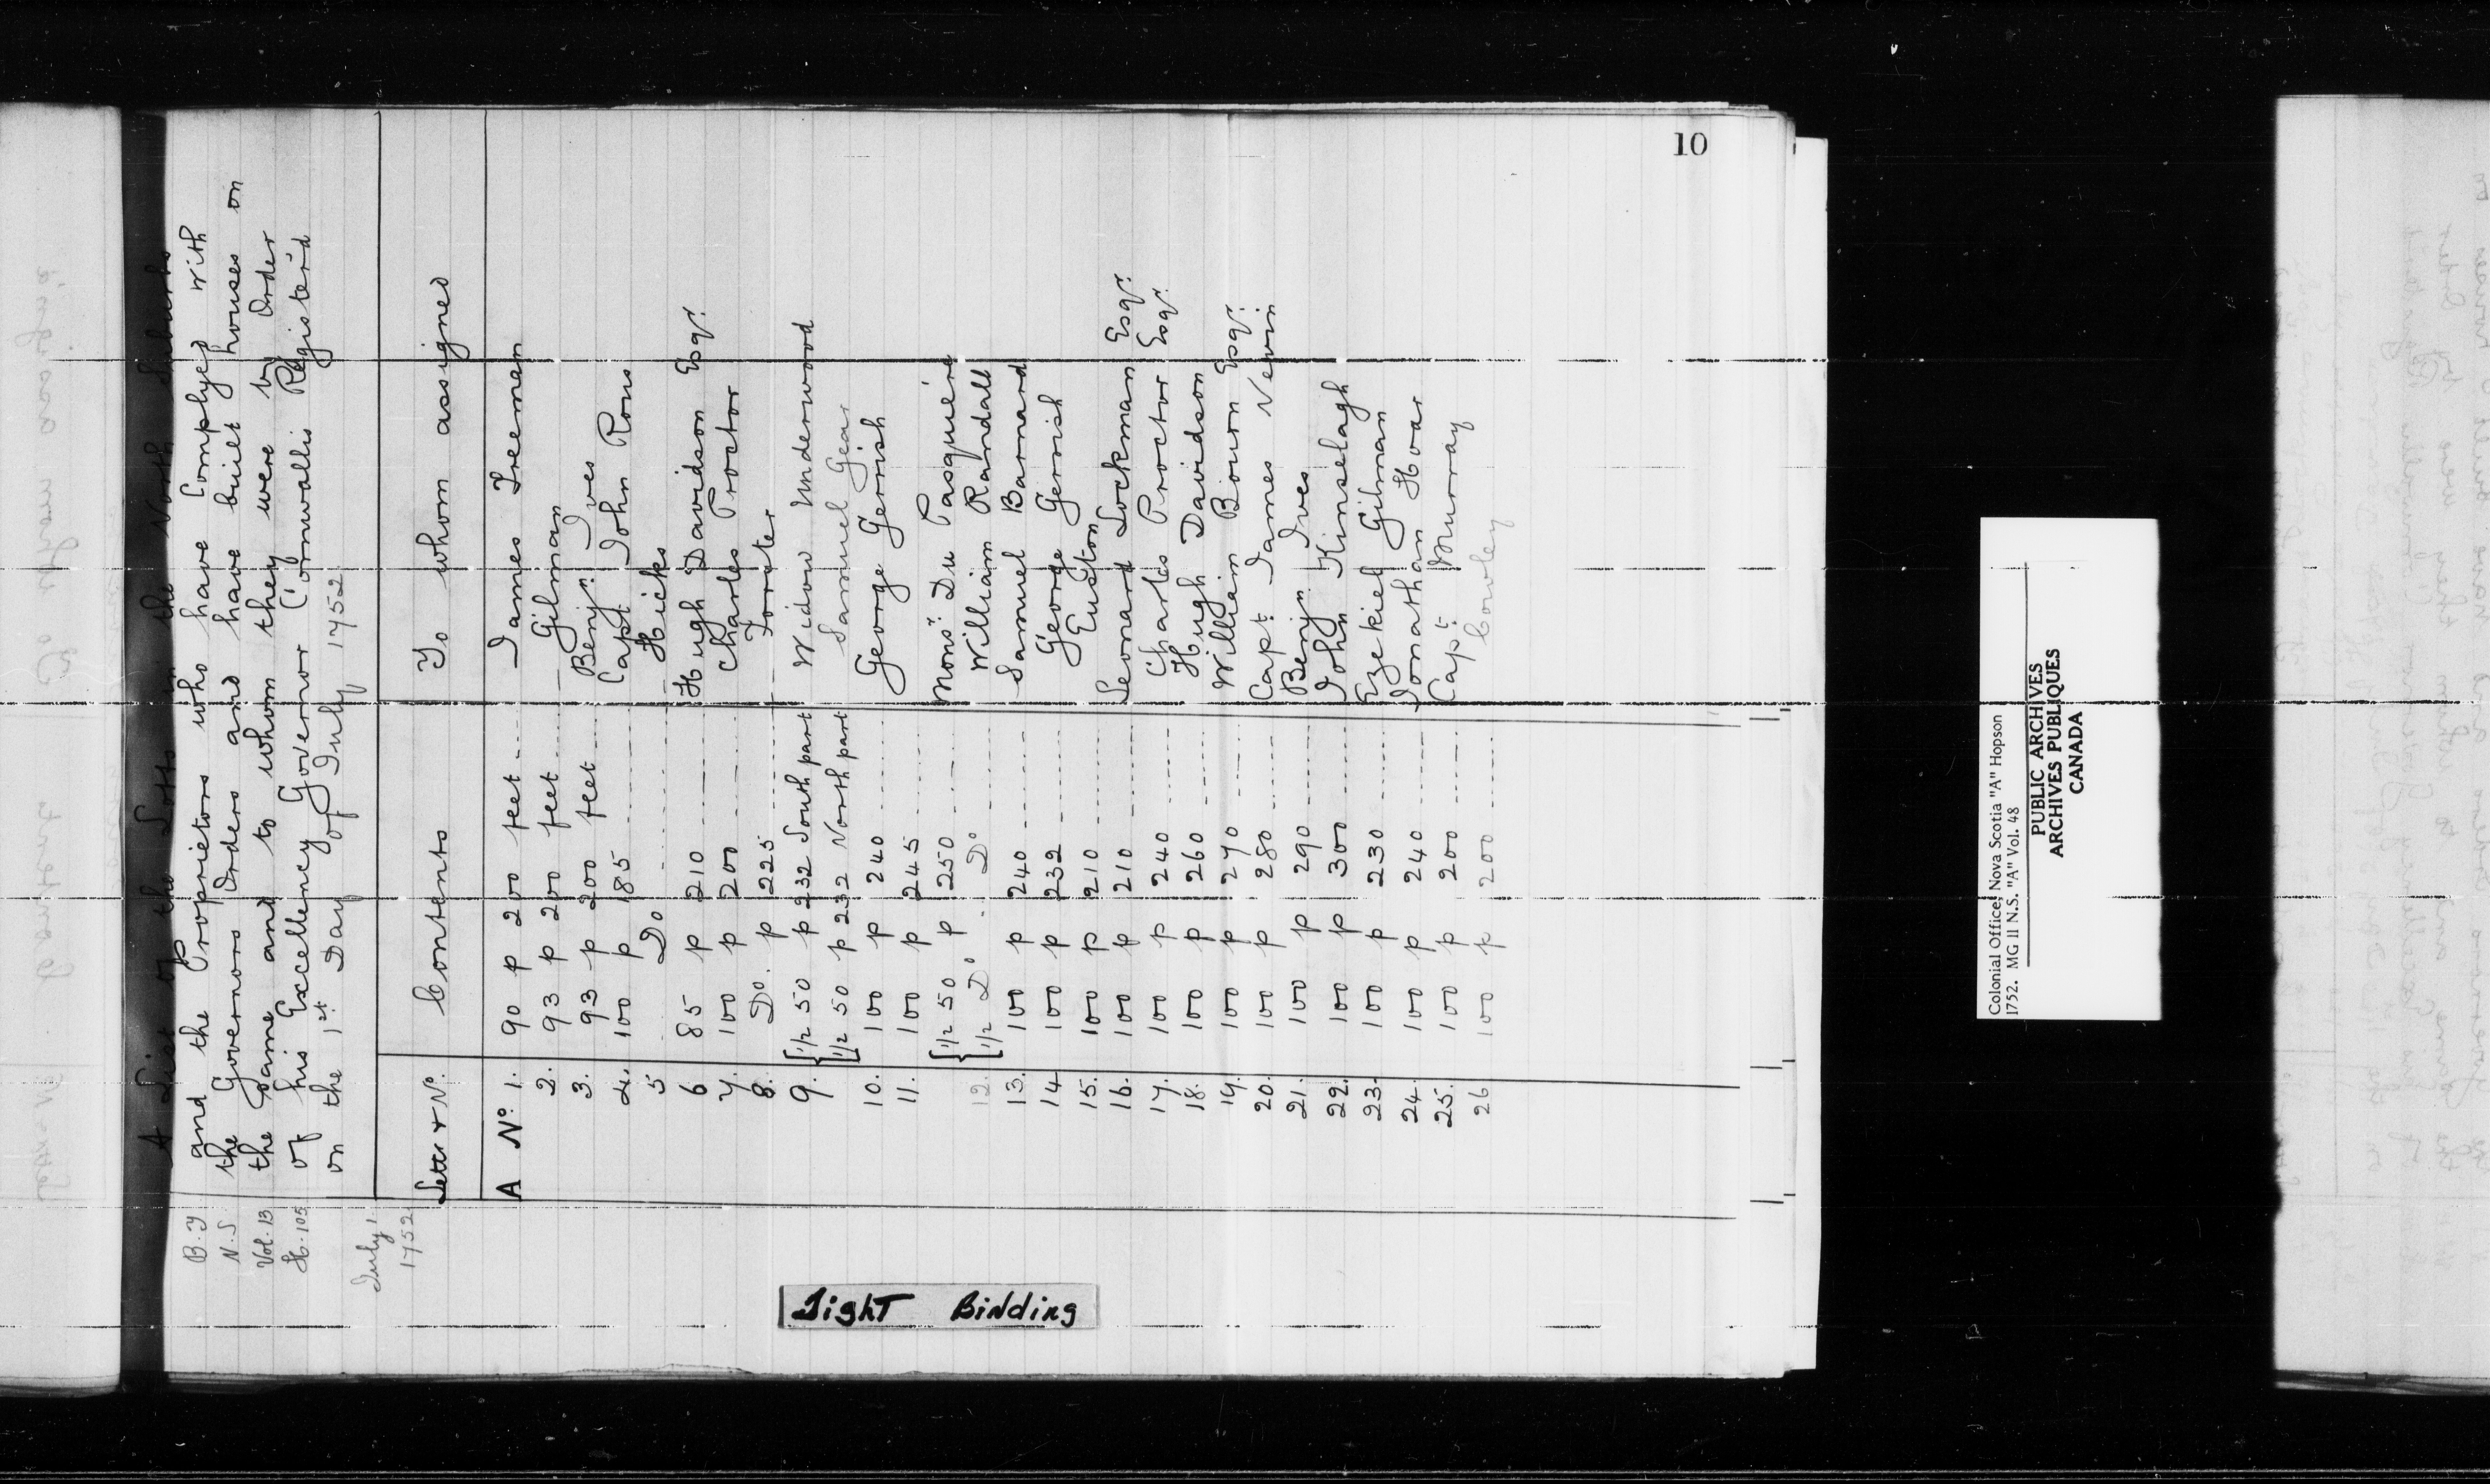 10
A List of the Lotts in the North Suburbs
and the Proprietors who have Complyed with
the Governors Orders and have built houses on
the Same and to whom they were by Order
of his Excellency Governor Cornwallis Registerd
on the 1st Day of July 1752.
B.T
N.S
Vol. 13
H. 105
July 1
1752
Letter & No. Contents To whom assigned
A No. 1. 90 p 200 feet James Freeman
2. 93 p 200 feet Gilman
3. 93 p 200 feet Benjn. Ives
4. 100 p 185 Capt. John Rous
5 Do Hicks
6 85 p 210 Hugh Davidson Esqr.
7. 100 p 200 Charles Proctor
8. Do. p 225 Forster
9. { 1/2 50 p 232 South part Widow Underwood
1/2 50 p 232 North part Samuel Gear
10. 100 p 240 George Gerrish
11. 100 p 245
{ 1/2 50 p 250 Monsr. Du Pasquiere
12. 1/2 Do. Do William Randall
13. 100 p 240 Samuel Barnard
14 100 p 232 George Gerrish
15. 100 p 210 Euston
16. 100 p 210 Leonard Lockman Esqr.
17. 100 p 240 Charles Proctor Esqr.
18. 100 p 260 Hugh Davidson
19. 100 p 270 William Bourn Esqr.
20. 100 p 280 Capt. James Nevin
21. 100 p 290 Benjn. Ives
22. 100 p 300 John Kinselagh
23. 100 p 230 Ezekiel Gilman
24. 100 p 240 Jonathan Hoar
25. 100 p 200 Capt. Murray
26 100 p 200 Cowley
Tight Binding
Colonial Office, Nova Scotia "A" Hopson
1752. MG 11 N.S. "A" Vol. 48
PUBLIC ARCHIVES
ARCHIVES PUBLIQUES
CANADA